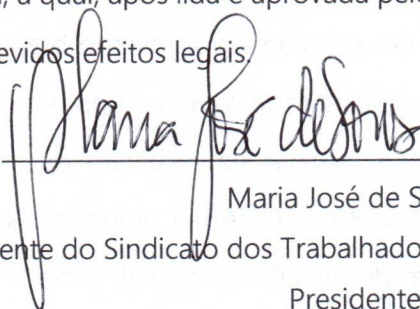 a qual, após lida e aprovada pel
evidos efeitos legais.
Maria José de Sous
Maria José de S
ente do Sindicato dos Trabalhado
Presidente